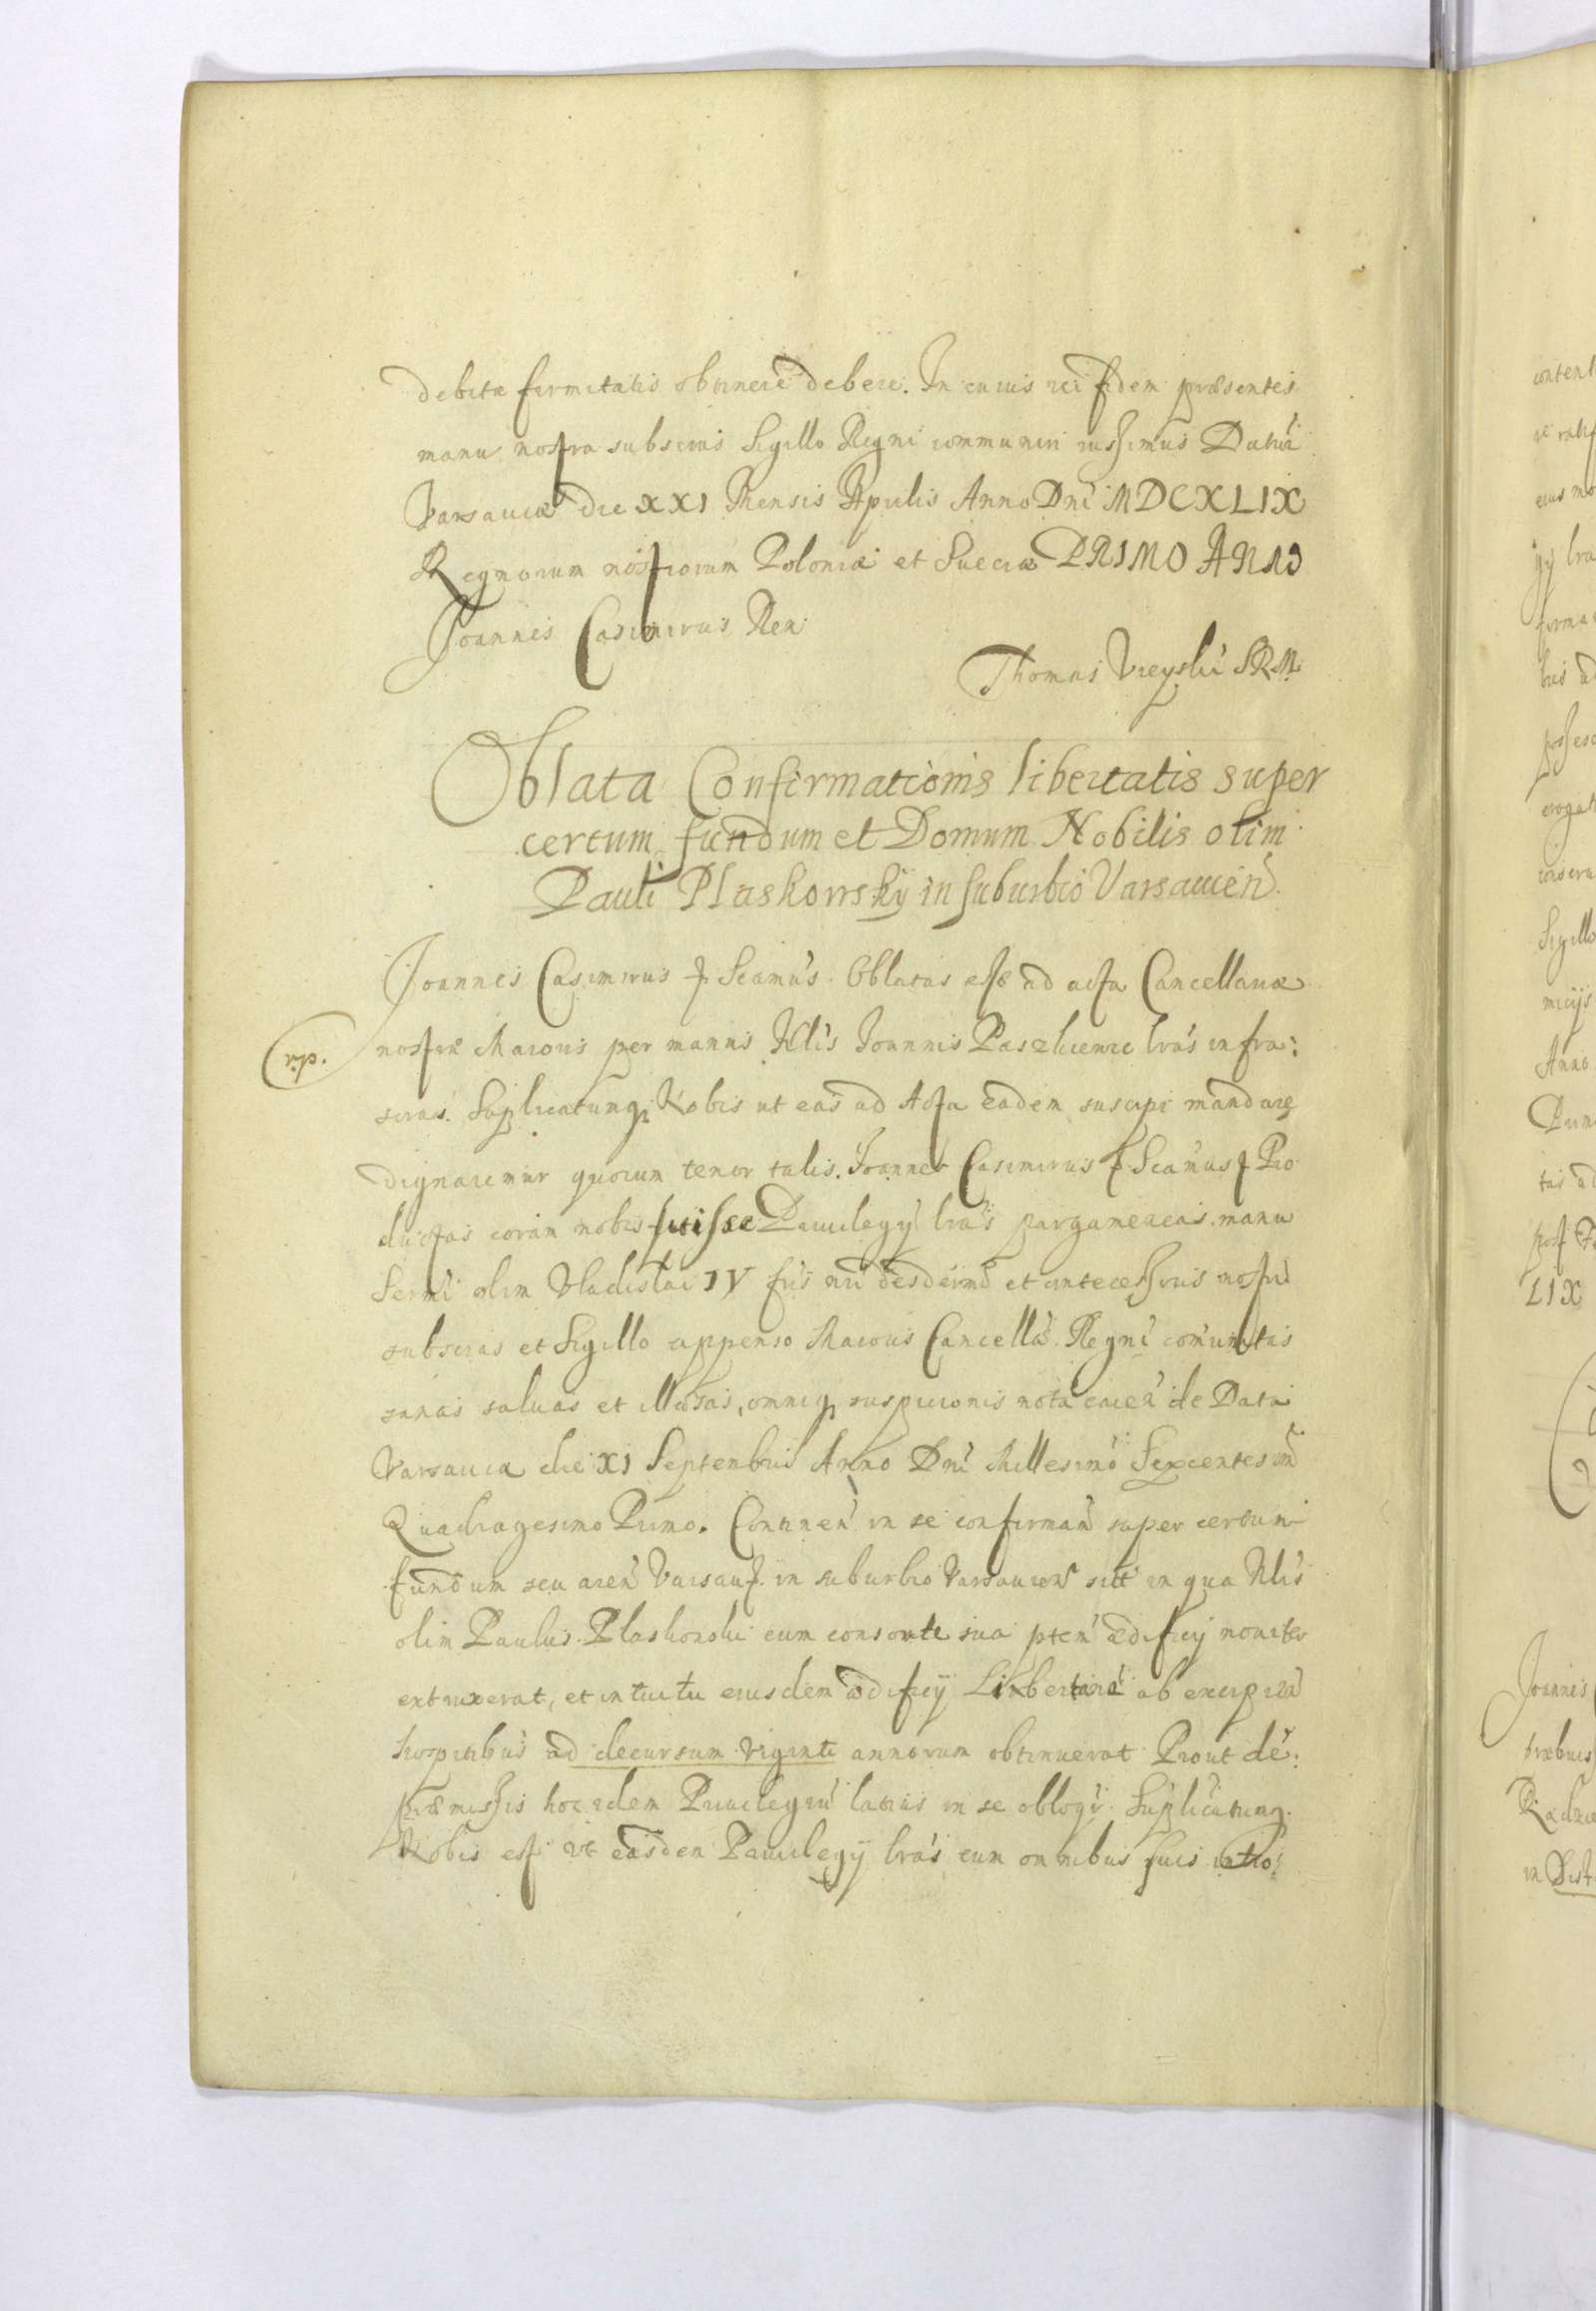 debitæ firmitatis obtinere debere. In cuius rei fidem præsentes
manu nostra subscras Sigillo Regni communiri iussimus Datum
Varsauiæ die XXI Mensis Aprilis Anno Dni MDCXLIX
Regnorum nostrorum Poloniæ et Sueciæ PRIMO ANNO
Joannes Casimirus Rex
Thomas Vieyski SRM
Oblata Confirmationis libertatis super
certum fundum et Domum Nobilis olim
Pauli Plaskowskÿ in suburbio Varsauien
Joannes Casimirus Scamus Oblatas esse ad acta Cancellariæ
rp.
nostræ Maioris per manus Nlis Joannis Paszkiewic lras infra:
scras. Suplicatumq Nobis ut eas ad Acta eadem suscipi mandare
dignaremur quorum tenor talis. Joannes Casimirus Scamus Pro
ductas coram nobis fuisse Priuilegÿ lras pargameneas manu
Sermi olim Vladislai IV fris nri desdermi et antecessoris nostri
subscras et Sigillo appenso Maioris Cancellæ Regni comunitas
sanas saluas et illæsas, omniq suspicionis nota caren de Data
Varsauia die XI Septembris Anno Dni Millesimo Sexcentesimo
Quadragesimo Primo. Continen in se confirmam super certum
fundum seu aren in suburbio Varsauien sitt in qua Nlis
olim Paulus Plaskonski cum consorte sua ptem ædificij nouiter
extruxerat, et intuitu eiusdem ædificÿ Libertatem ab excipien
hospitibus ad decursum viginti annorum obtinuerat Prout de:
præmissis hoc idem Priuilegiu latius in se obloqr. Suplicatumq
Nobis est vt easdem Priuilegÿ lras cum omnibus suis